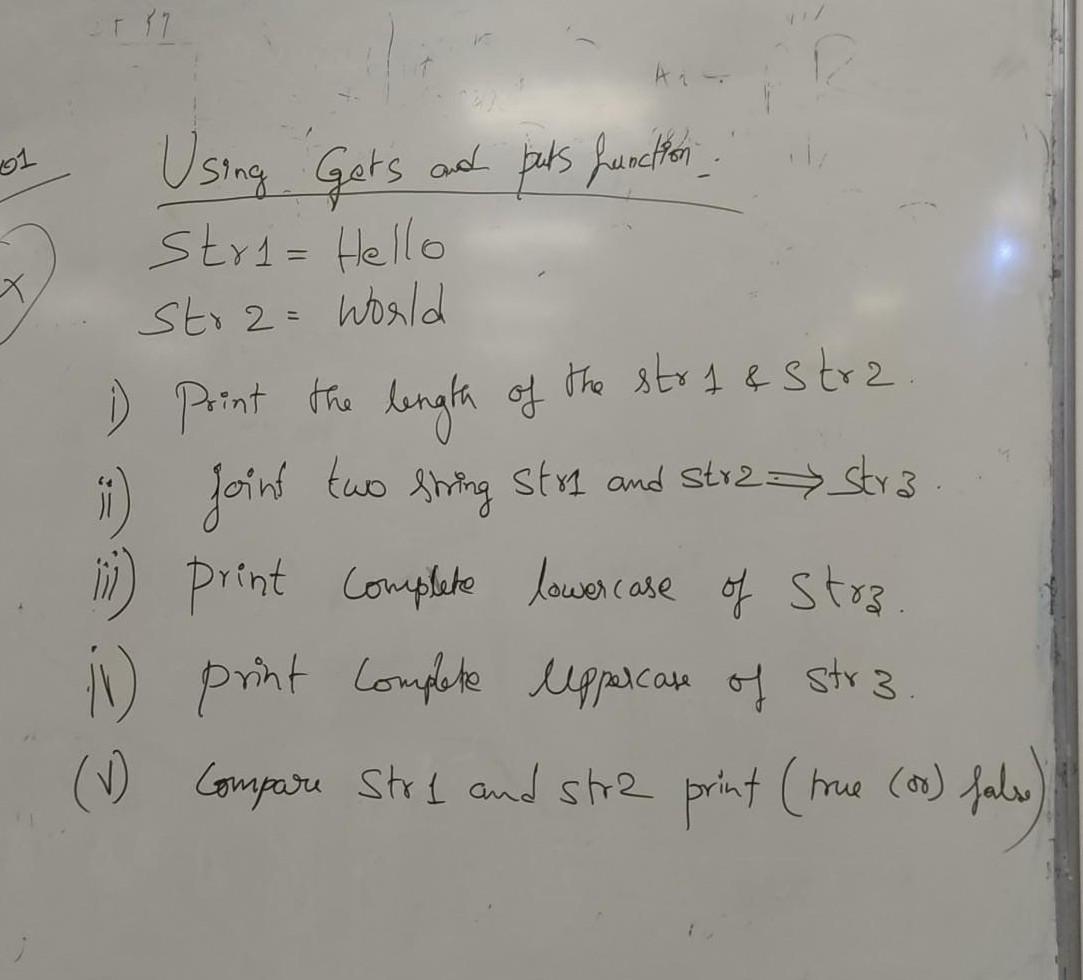 01
Using Gets and puts function.
Str1 = Hello
Str 2 = World
i) Print the length of the str 1 & Str 2.
ii) joint two string Str1 and Str2 ⇒ Str 3.
iii) print Complete lowercase of Str3.
iv) print Complete Uppercase of Str 3.
(V) Compare Str 1 and str2 print (true (or) false)